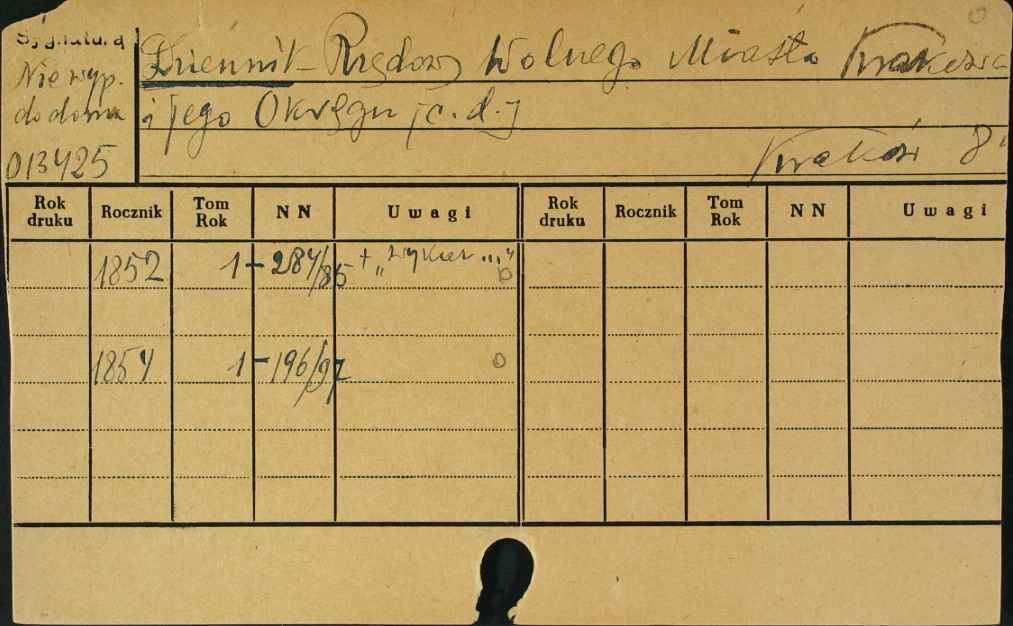 Sygnatura
Nie wyp.
do domu
013425
Dziennik Rządowy Wolnego Miasta Krakowa
i jego Okręgu [c.d.]
Kraków 8°
Rok druku Rocznik Tom Rok NN Uwagi Rok druku Rocznik Tom Rok NN Uwagi
1852 1 - 284/85 +
1854 1 - 196/97